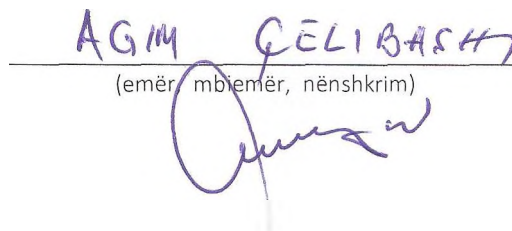 AGIM ÇELIBASHI
(emër, mbiemër, nënshkrim)